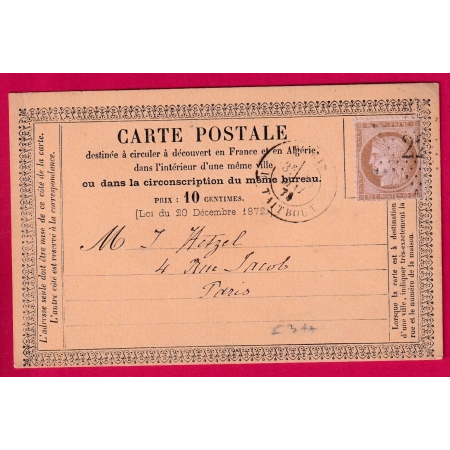 CARTE POSTALE
destinée à circuler à découvert en France et en Algérie,
dans l'intérieur d'une même ville,
ou dans la circonscription du même bureau.
PRIX : 10 CENTIMES.
(Loi du 20 Décembre 1872)
M J Hetzel
4 Rue Jacob
Paris
L'adresse seule doit être mise de ce côté de la carte.
L'autre côté est réservé à la correspondance.
Lorsque la carte est à destination
d'une ville, indiquer très-exactement la
rue et le numéro de la maison.
TAITBOUT
22